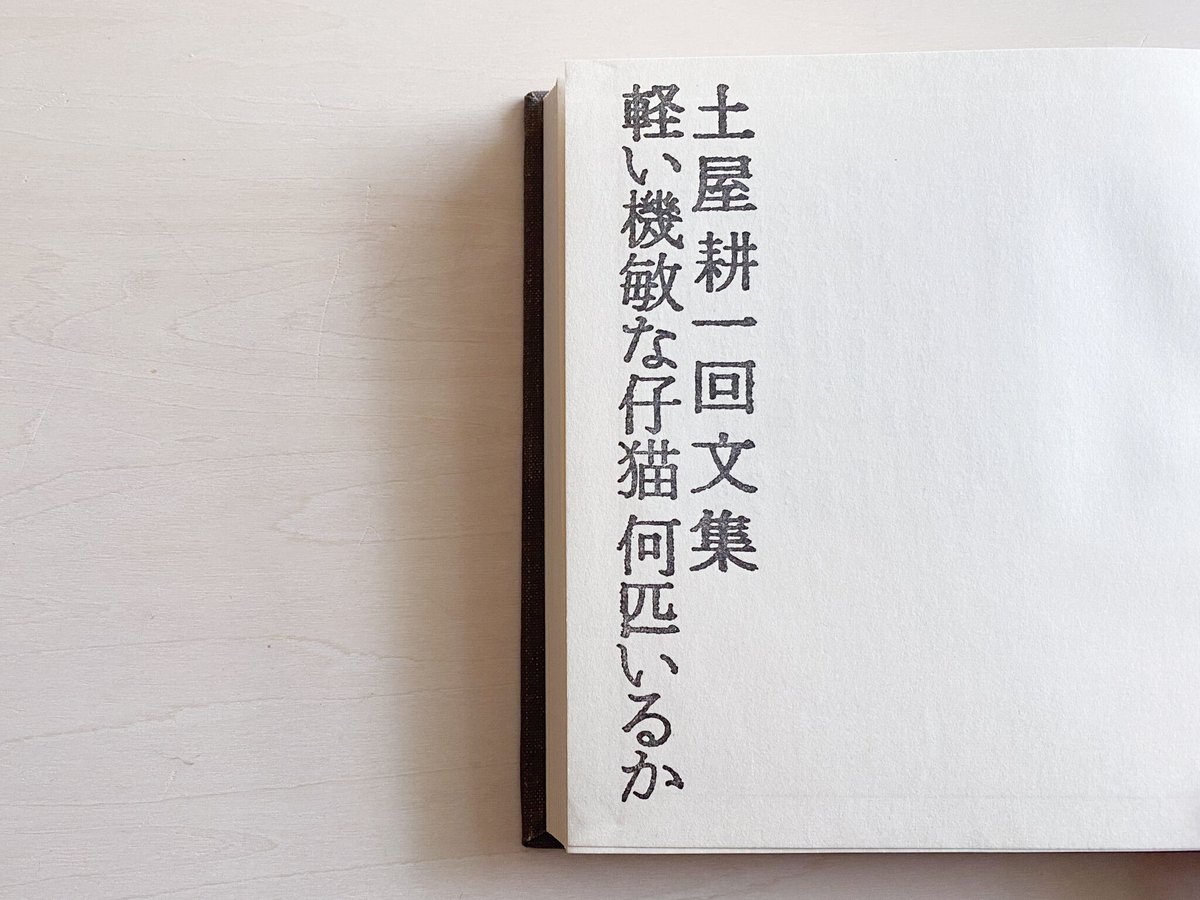 土屋耕一回文集
軽い機敏な仔猫何匹いるか